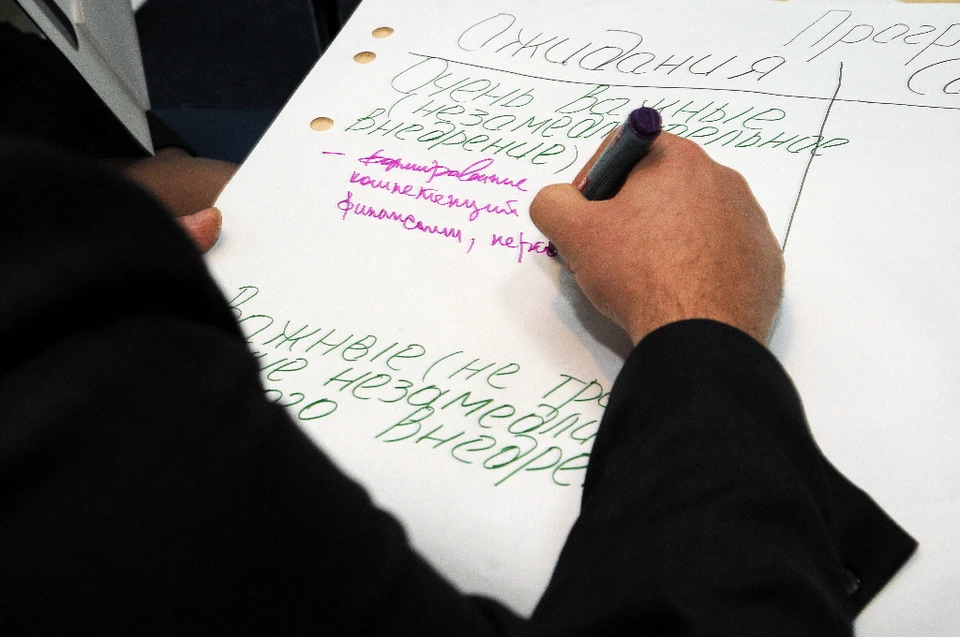 Ожидания Прогр
Со
Очень важные
(незамедлительное
внедрение)
- формирование
компетенций
финансами, перс
Важные (не тре
ые незамедли
ого внедре